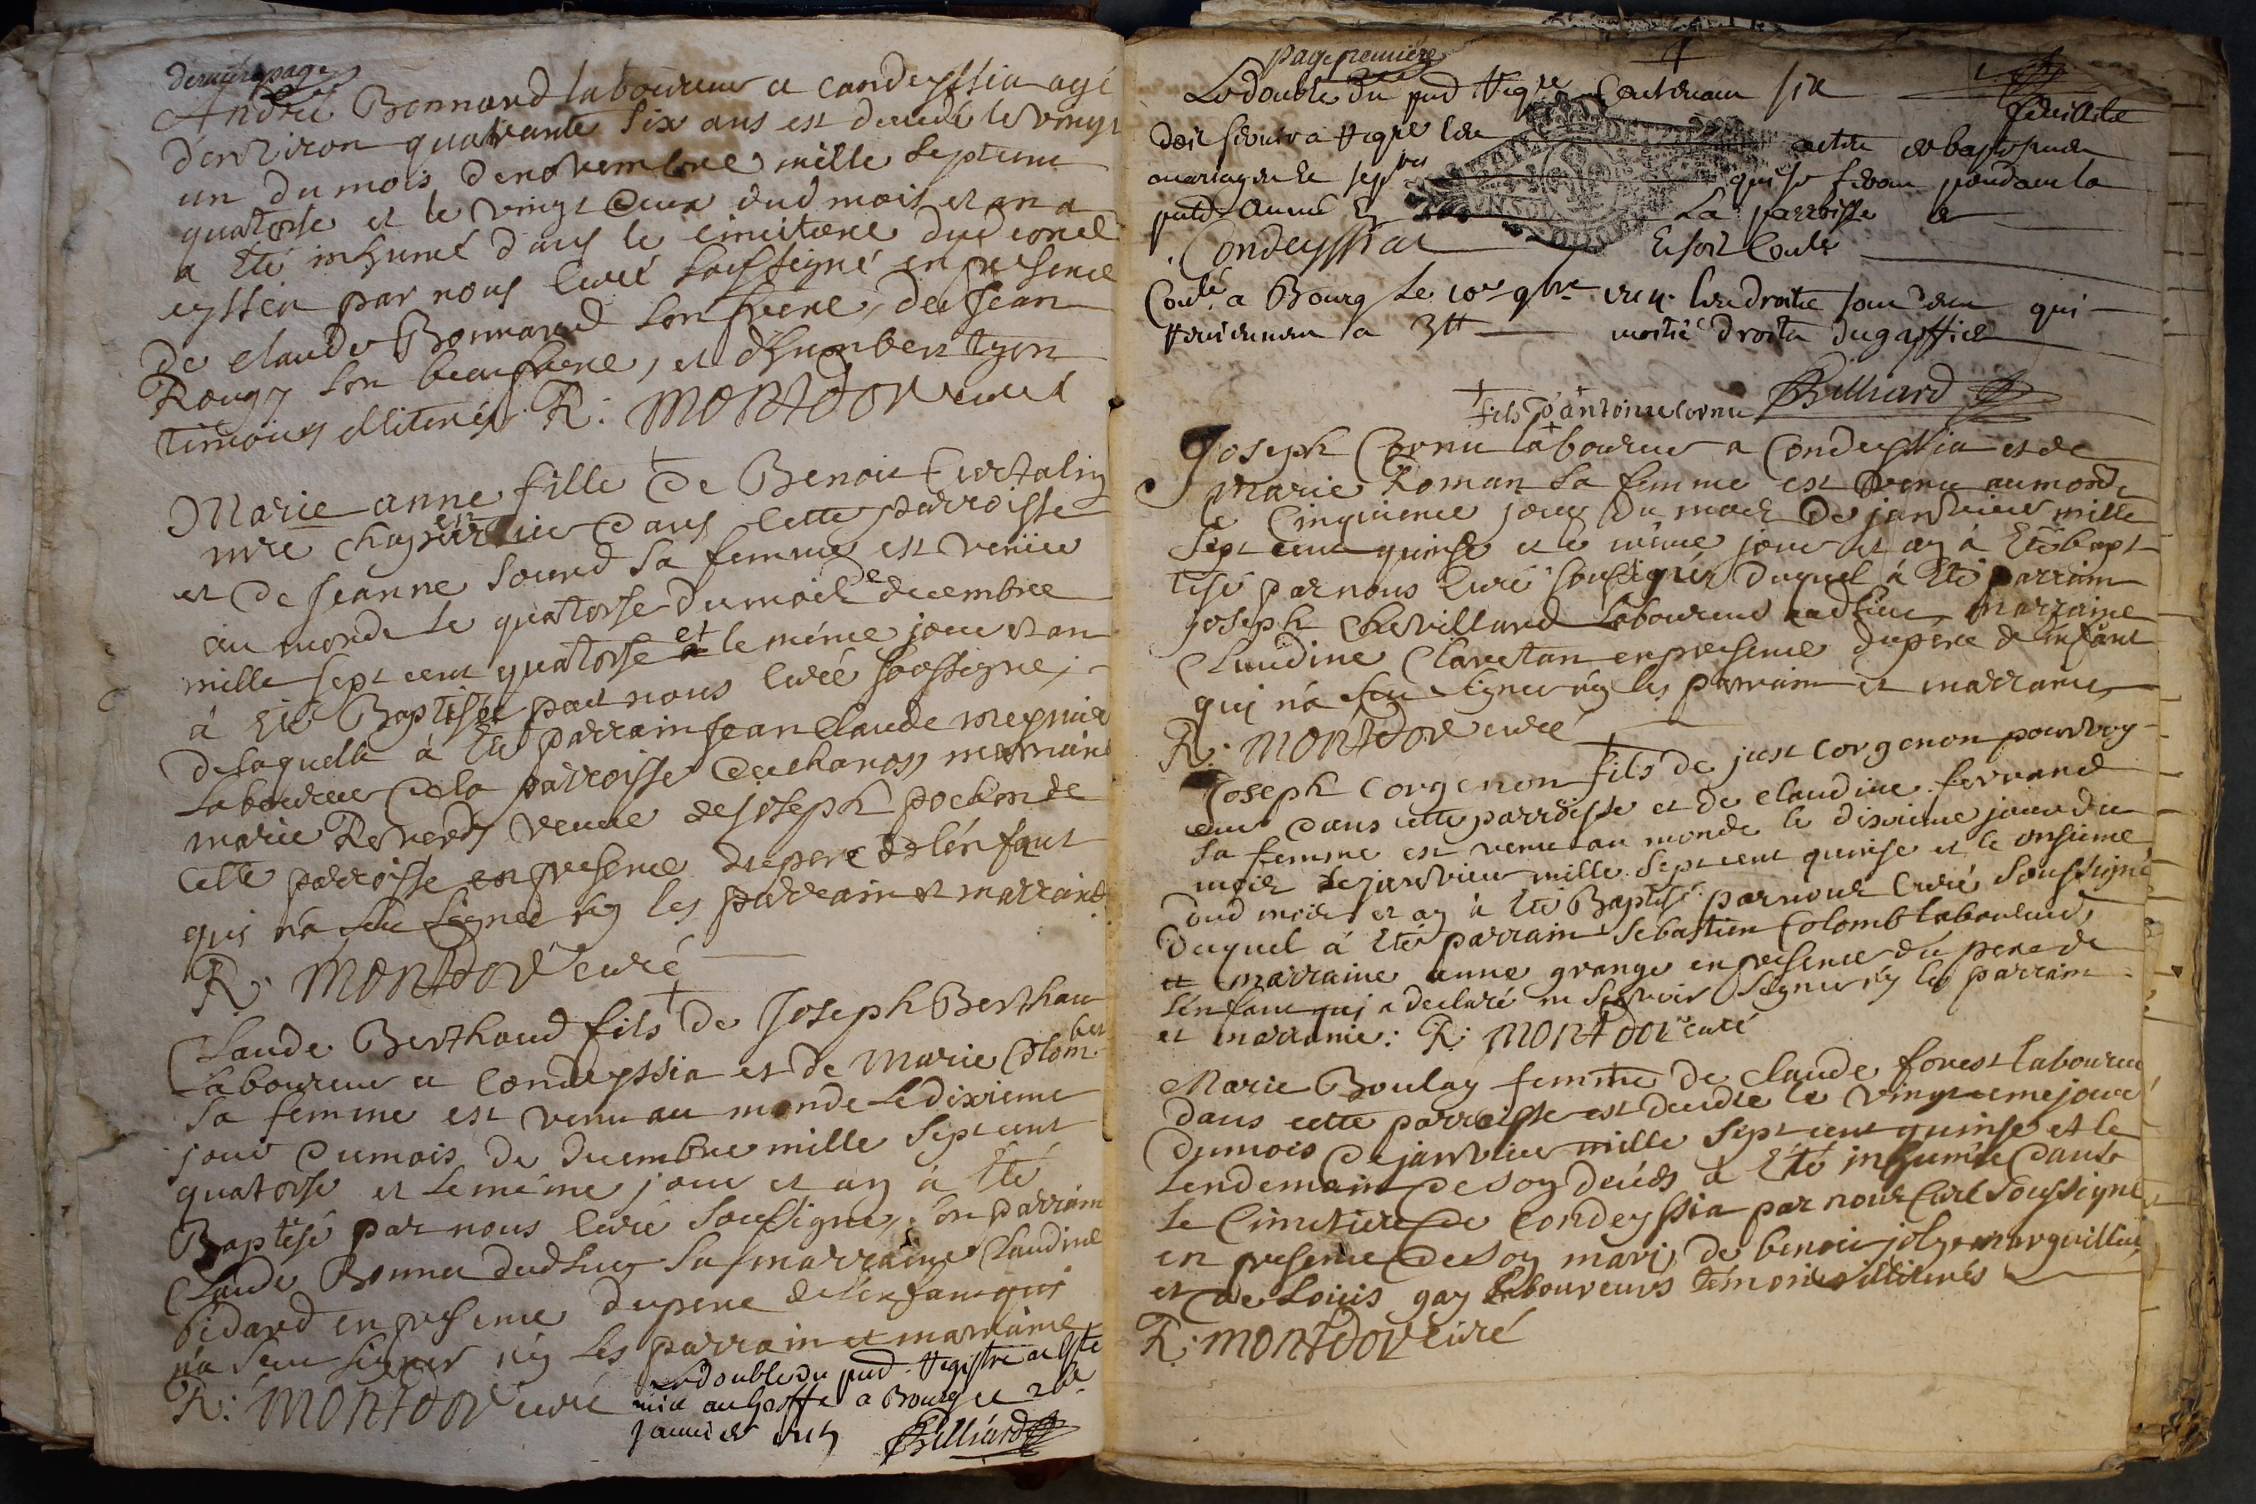 derniere page
André Bonnard laboureur a condeyssia agé
d'environ quarante six ans est decedé le vingt
un du mois de novembre mille sept cent
quatorse et le vingt deux dud mois et an a
a été inhumé dans le cimitiere dud cond
eyssia par nous curé soussigné en presence
de claude Bonnard son frere, de Jean
Rougy son beaufrere, et d'humbert
timoins illiterés. R: MONTDOR curé
Marie anne fille de Benoit Curtalin
dans cette parroisse
et de jeanne sourd sa femme est venüe
au monde le quatorse du mois de decembre
mille sept cent quatorse et le même jour et an
à été Baptisée par nous curé soussigné,
de laquelle à été parrain jean claude meynier
laboureur de la parroisse de chanos, marraine
marie Reverdy veuve de joseph pochon de
cette parroisse en presence du pere de l'enfant
qui n'a seu signer ny les parrain et marraine
R. MONTDOR curé
Claude Berthoud fils de Joseph Berthau
laboureur a condeyssia et de Marie Colom
bet
sa femme est venu au monde le dixieme
jour du mois de decembre mille sept cent
quatorse et le même jour et an à été
Baptisé par nous curé soussigné, son parrain
Claude Bonnet dud lieu sa marraine Claudine
Pidard en presence du pere de l'enfant qui
n'a seu signer ny les parrain et marraine
R: MONTDOR curé
Le double du pnt Registre a esté
mis au greffe a Bourg le
janvier Billiard
page premiere
Le double du pnt Regre Contenant six
feuillets
doit servir a Regrer les actes de baptesmes
mariages et sep res qui se feront pendant la
pnte année La parroisse de
Condeyssiat Et soit Coulé
Coulé a Bourg Le 10e 9bre les droits sont deu qui
Reviennent a 3tt moitié droits du greffier
Billiard
fils d'antoine cornu
Joseph Cornu laboureur a Condeyssia et de
Marie Roman sa femme est venu au monde
le cinquieme jour du mois de janvier mille
sept cent quinse et le même jour et an à été bapt
tisé par nous curé soussigné, duquel à été parrain
joseph Chevillard laboureur aud lieu, marraine
Claudine Clavetan en presence du pere de l'enfant
qui n'a seu signer ny les parrain et marraine
R: MONTDOR curé
Joseph corgenon fils de just corgenon
dans cette parroisse et de claudine ferrand
sa femme est venu au monde le dixieme jour du
mois de janvier mille sept cent quinse et le onsieme
dud mois et an à été Baptisé par nous curé soussigné
duquel à été parrain Sebastien Colomb laboureur,
et marraine anne grange en presence du pere de
l'enfant qui a declaré ne scavoir signer ny les parrain
et marraine: R: MONTDOR curé
Marie Boulay femme de claude forest laboureur
dans cette parroisse est decedée le vingtieme jour
du mois de janvier mille sept cent quinse et le
lendemain de son decés à été inhumée dans
le Cimitiere de condeyssia par nous Curé soussigné
en presence de son mari, de benoit joly marguillier,
et de Loüis gay laboureurs témoins illiterés
R: MONTDOR curé